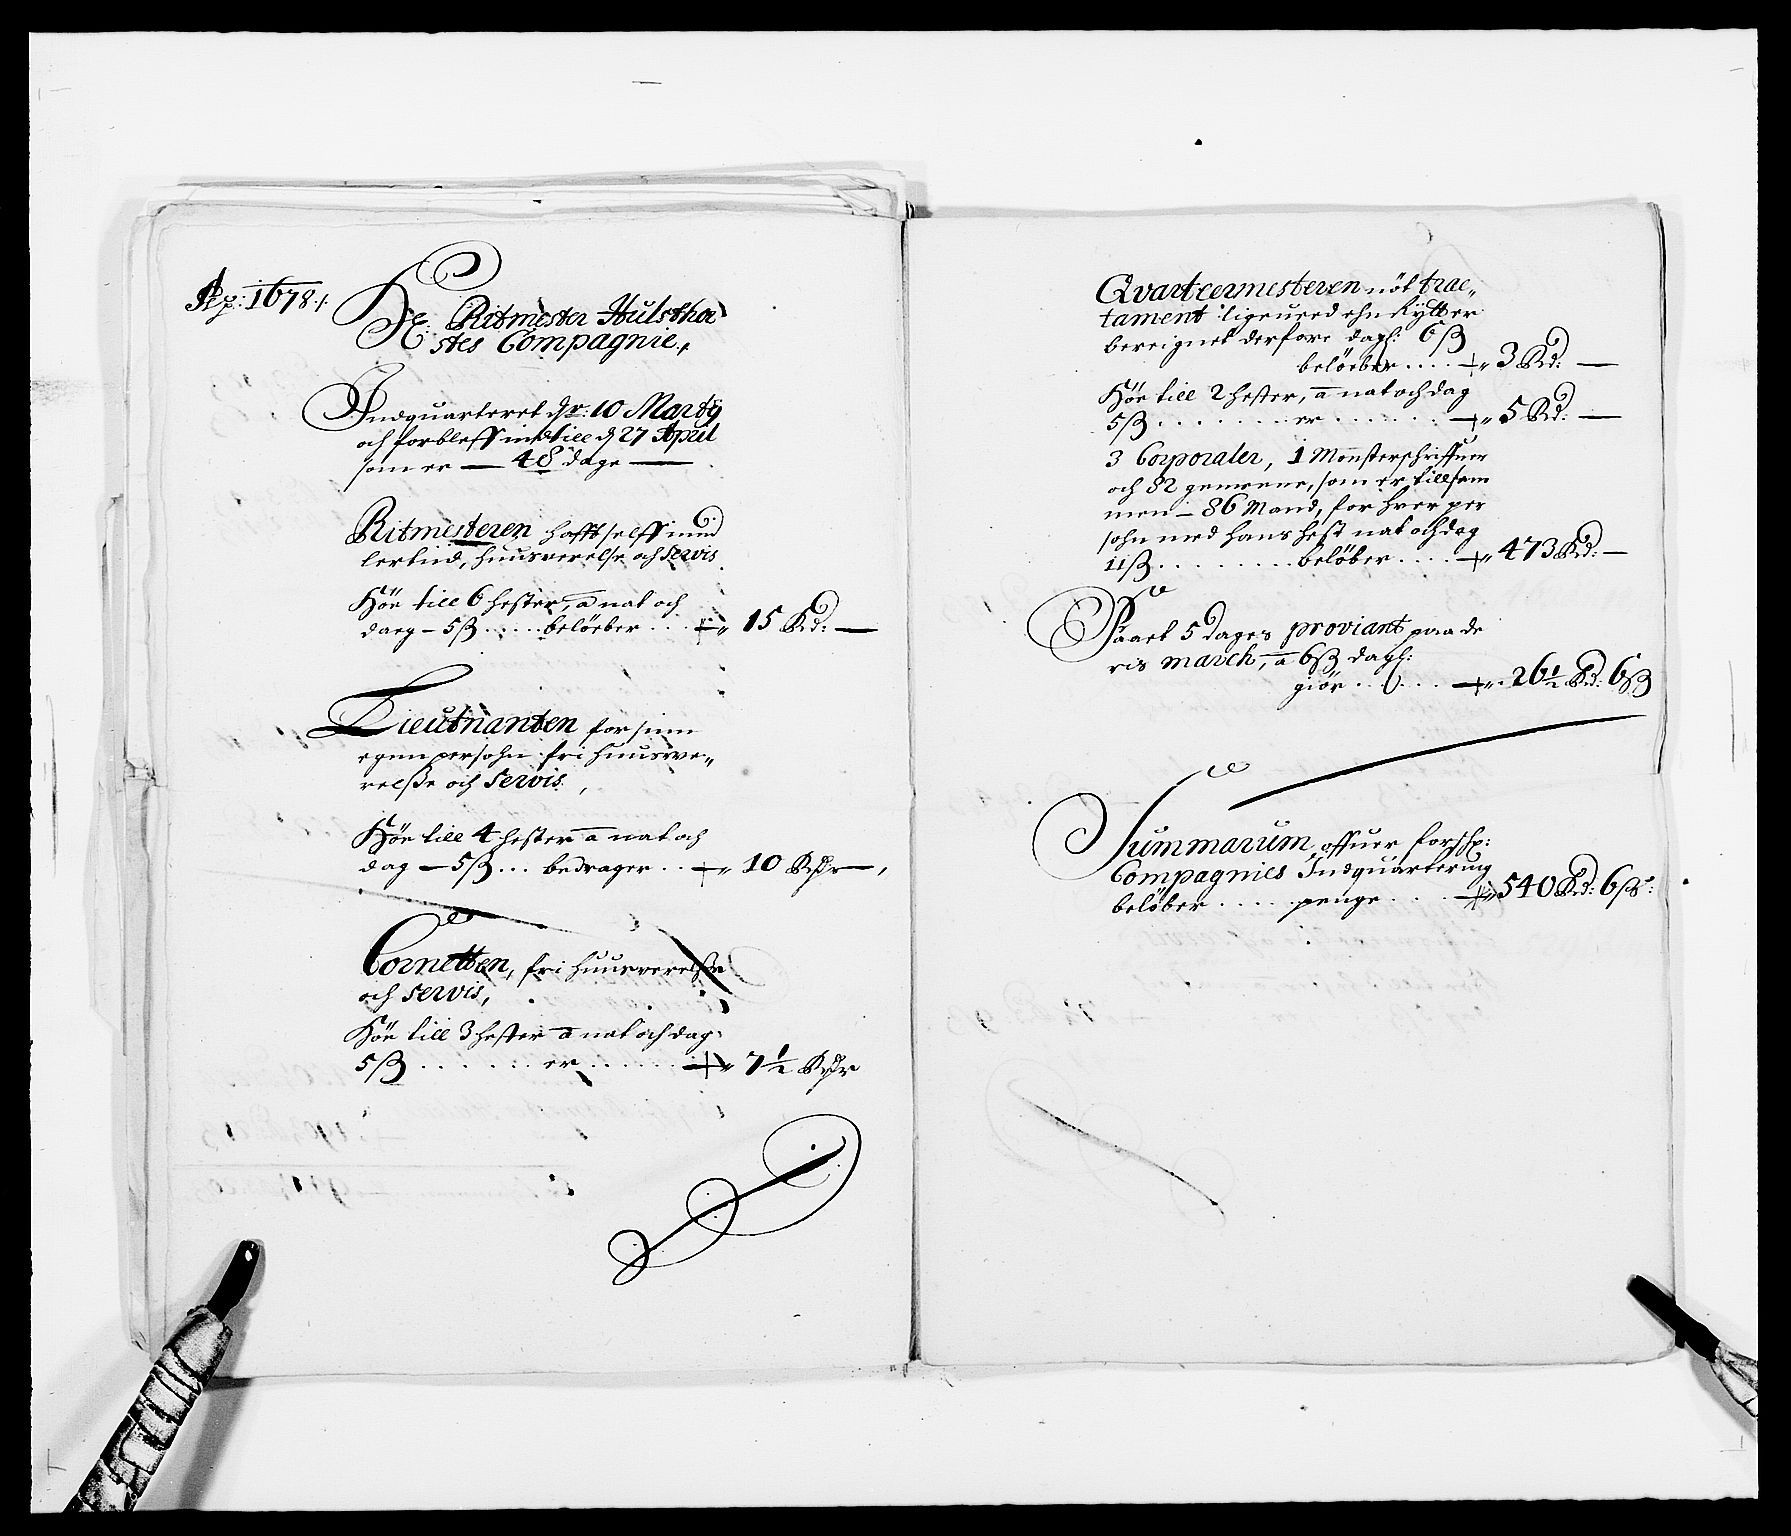 Ao: 1678 ⁒
Hr: Ritmester Hulstho
stes Compagnie,
Indquarteret dr: 10 Marty
och forbleff indtill d 27 April
som er — 48 dage —
Ritmesteren hafft selff und
lertiid, huusverelse och servis
Höe till 6 hester, a nat och
daeg – 5 ß ..... belöeber ... 15 Rd: —
Lieutnanten for sinn
egen persohn fri huusve„
relsse och servis,
Höe till 4 hester a nat och
dag — 5 ß ... bedrager .. 10 Rdr —,
Cornetten, fri huusverelsse
och servis,
Höe till 3 hester a nat och dag
5 ß ...... er ...... 7½ Rdr
Qvarteermesteren nöt trac„
tament ligeured ehn Rytter
bereignet derfore dagl: 6 ß
belöeber .... 3 Rd: —
Höe till 2 hester, a nat och dag
5 ß ....... er ....... 5 Rd: —
3 Corporaler, 1 Mönsterschriffuer
och 82 gemeene, som er tillsam
men – 86 Mand, for hver per
sohn med hans hest nat och dag
11 ß ........ belöber .... 473 Rd: —
Faaet 5 dages proviant paa de
ris march, a 6 ß dagl:
giör ..... 26½ Rd: 6 ß
Summarum offuer forschr:
Compagnies Indquartering
belöber .... penge .... 540 Rd: 6 ß: